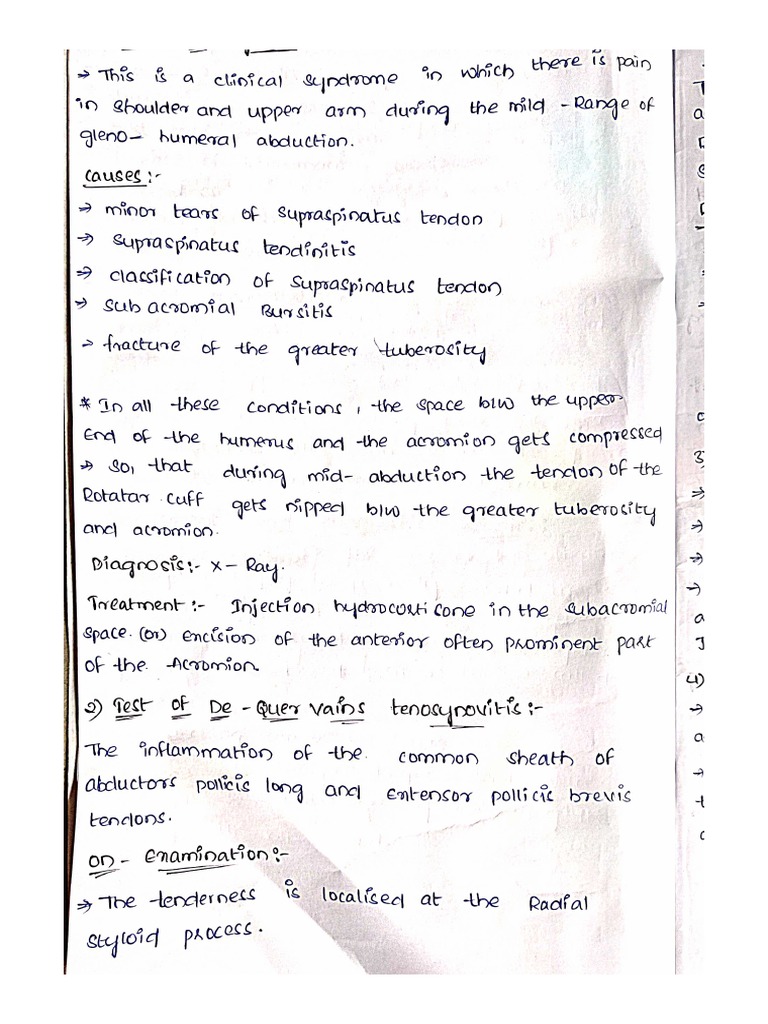 → This is a clinical syndrome in which there is pain
in shoulder and upper arm during the mild - Range of
gleno- humeral abduction.
causes:-
→ minor tears of supraspinatus tendon
→ supraspinatus tendinitis
→ classification of supraspinatus tendon
→ sub acromial Bursitis
→ fracture of the greater tuberosity
* In all these conditions, the space b/w the upper
End of the humerus and the acromion gets compressed
→ so, that during mid- abduction the tendon of the
Rotatar cuff gets nipped b/w the greater tuberosity
and acromion.
Diagnosis:- x- Ray.
Treatment:- Injection hydrocorticone in the subacromial
space. (or) encision of the anterior often prominent part
of the Acromion.
2) Test of De-Quervains tenosynovitis:-
The inflammation of the common sheath of
abductors pollicis long and Entensor pollicis brevis
tendons.
on- Enamination:-
→ The tenderness is localised at the Radial
styloid process.
3)
4)